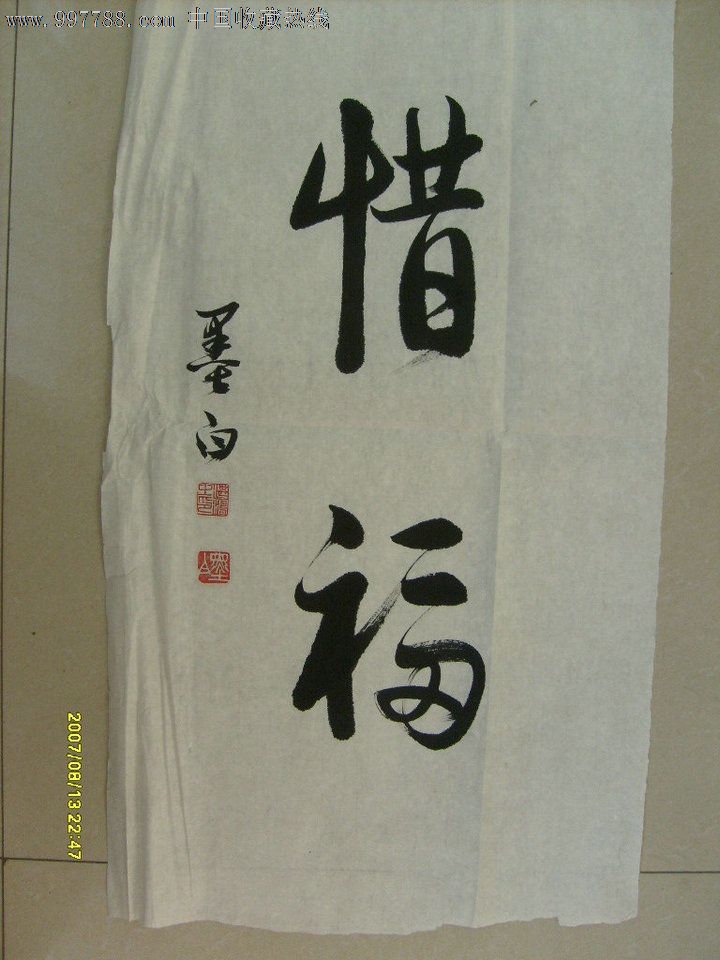 www.997788.com 中国收藏热线
惜福
墨白
2007/08/13 22:47